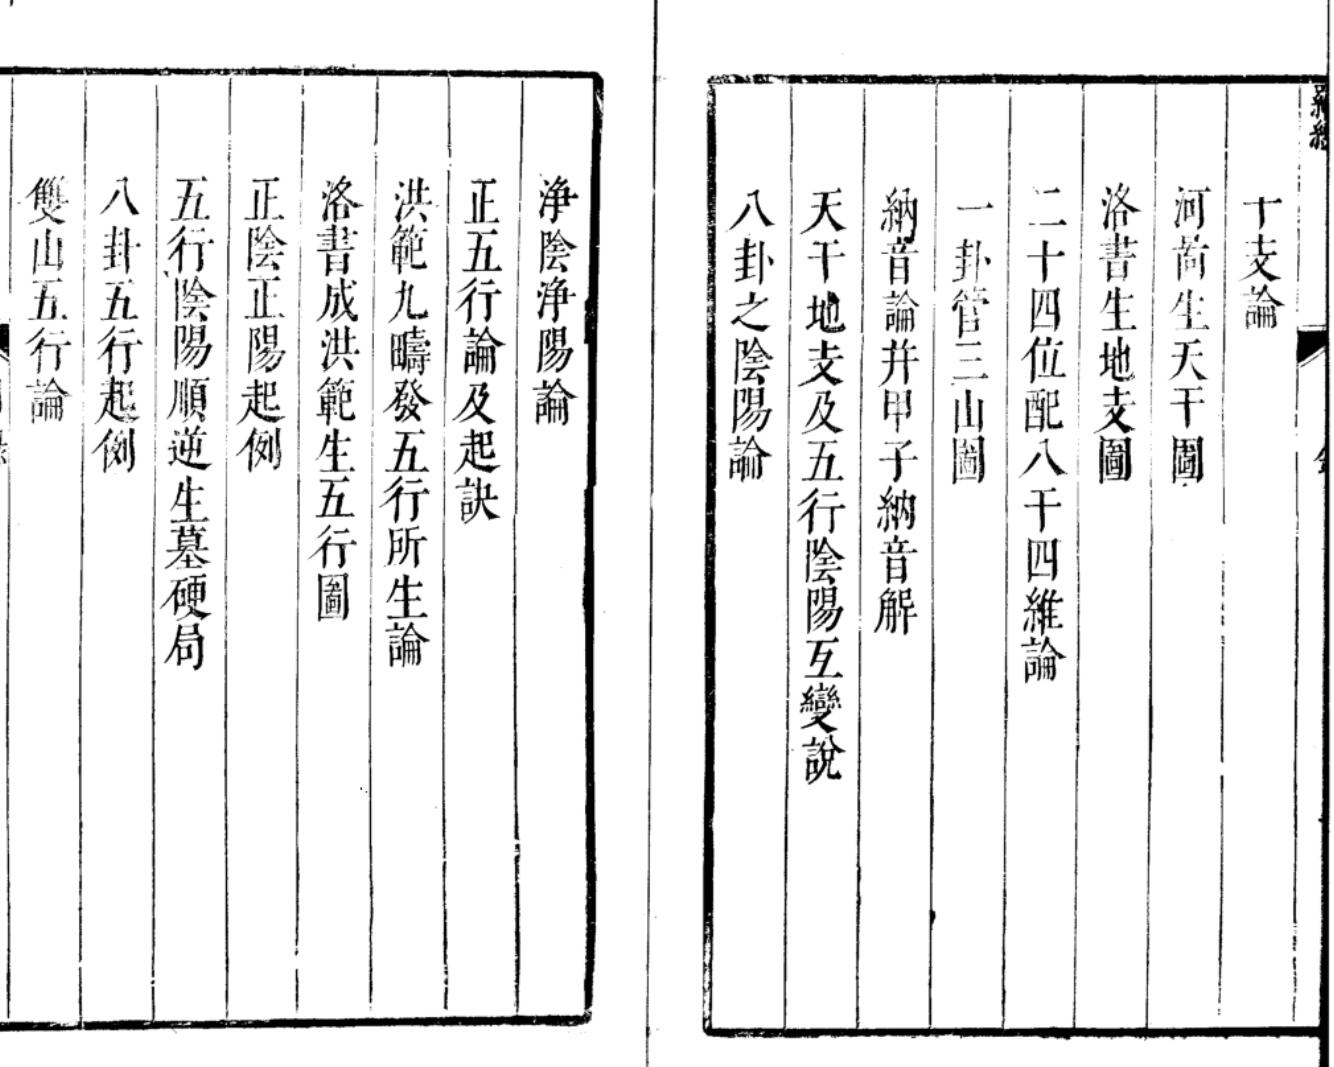 干支論
河啚生天干圖
洛書生地支圖
二十四位配八干四維論
一卦管三山圖
納音論并甲子納音解
天干地支及五行陰陽互變說
八卦之陰陽論
浄陰浄陽論
正五行論及起訣
洪範九疇發五行所生論
洛書成洪範生五行圖
正陰正陽起例
五行陰陽順逆生墓硬局
八卦五行起例
雙山五行論